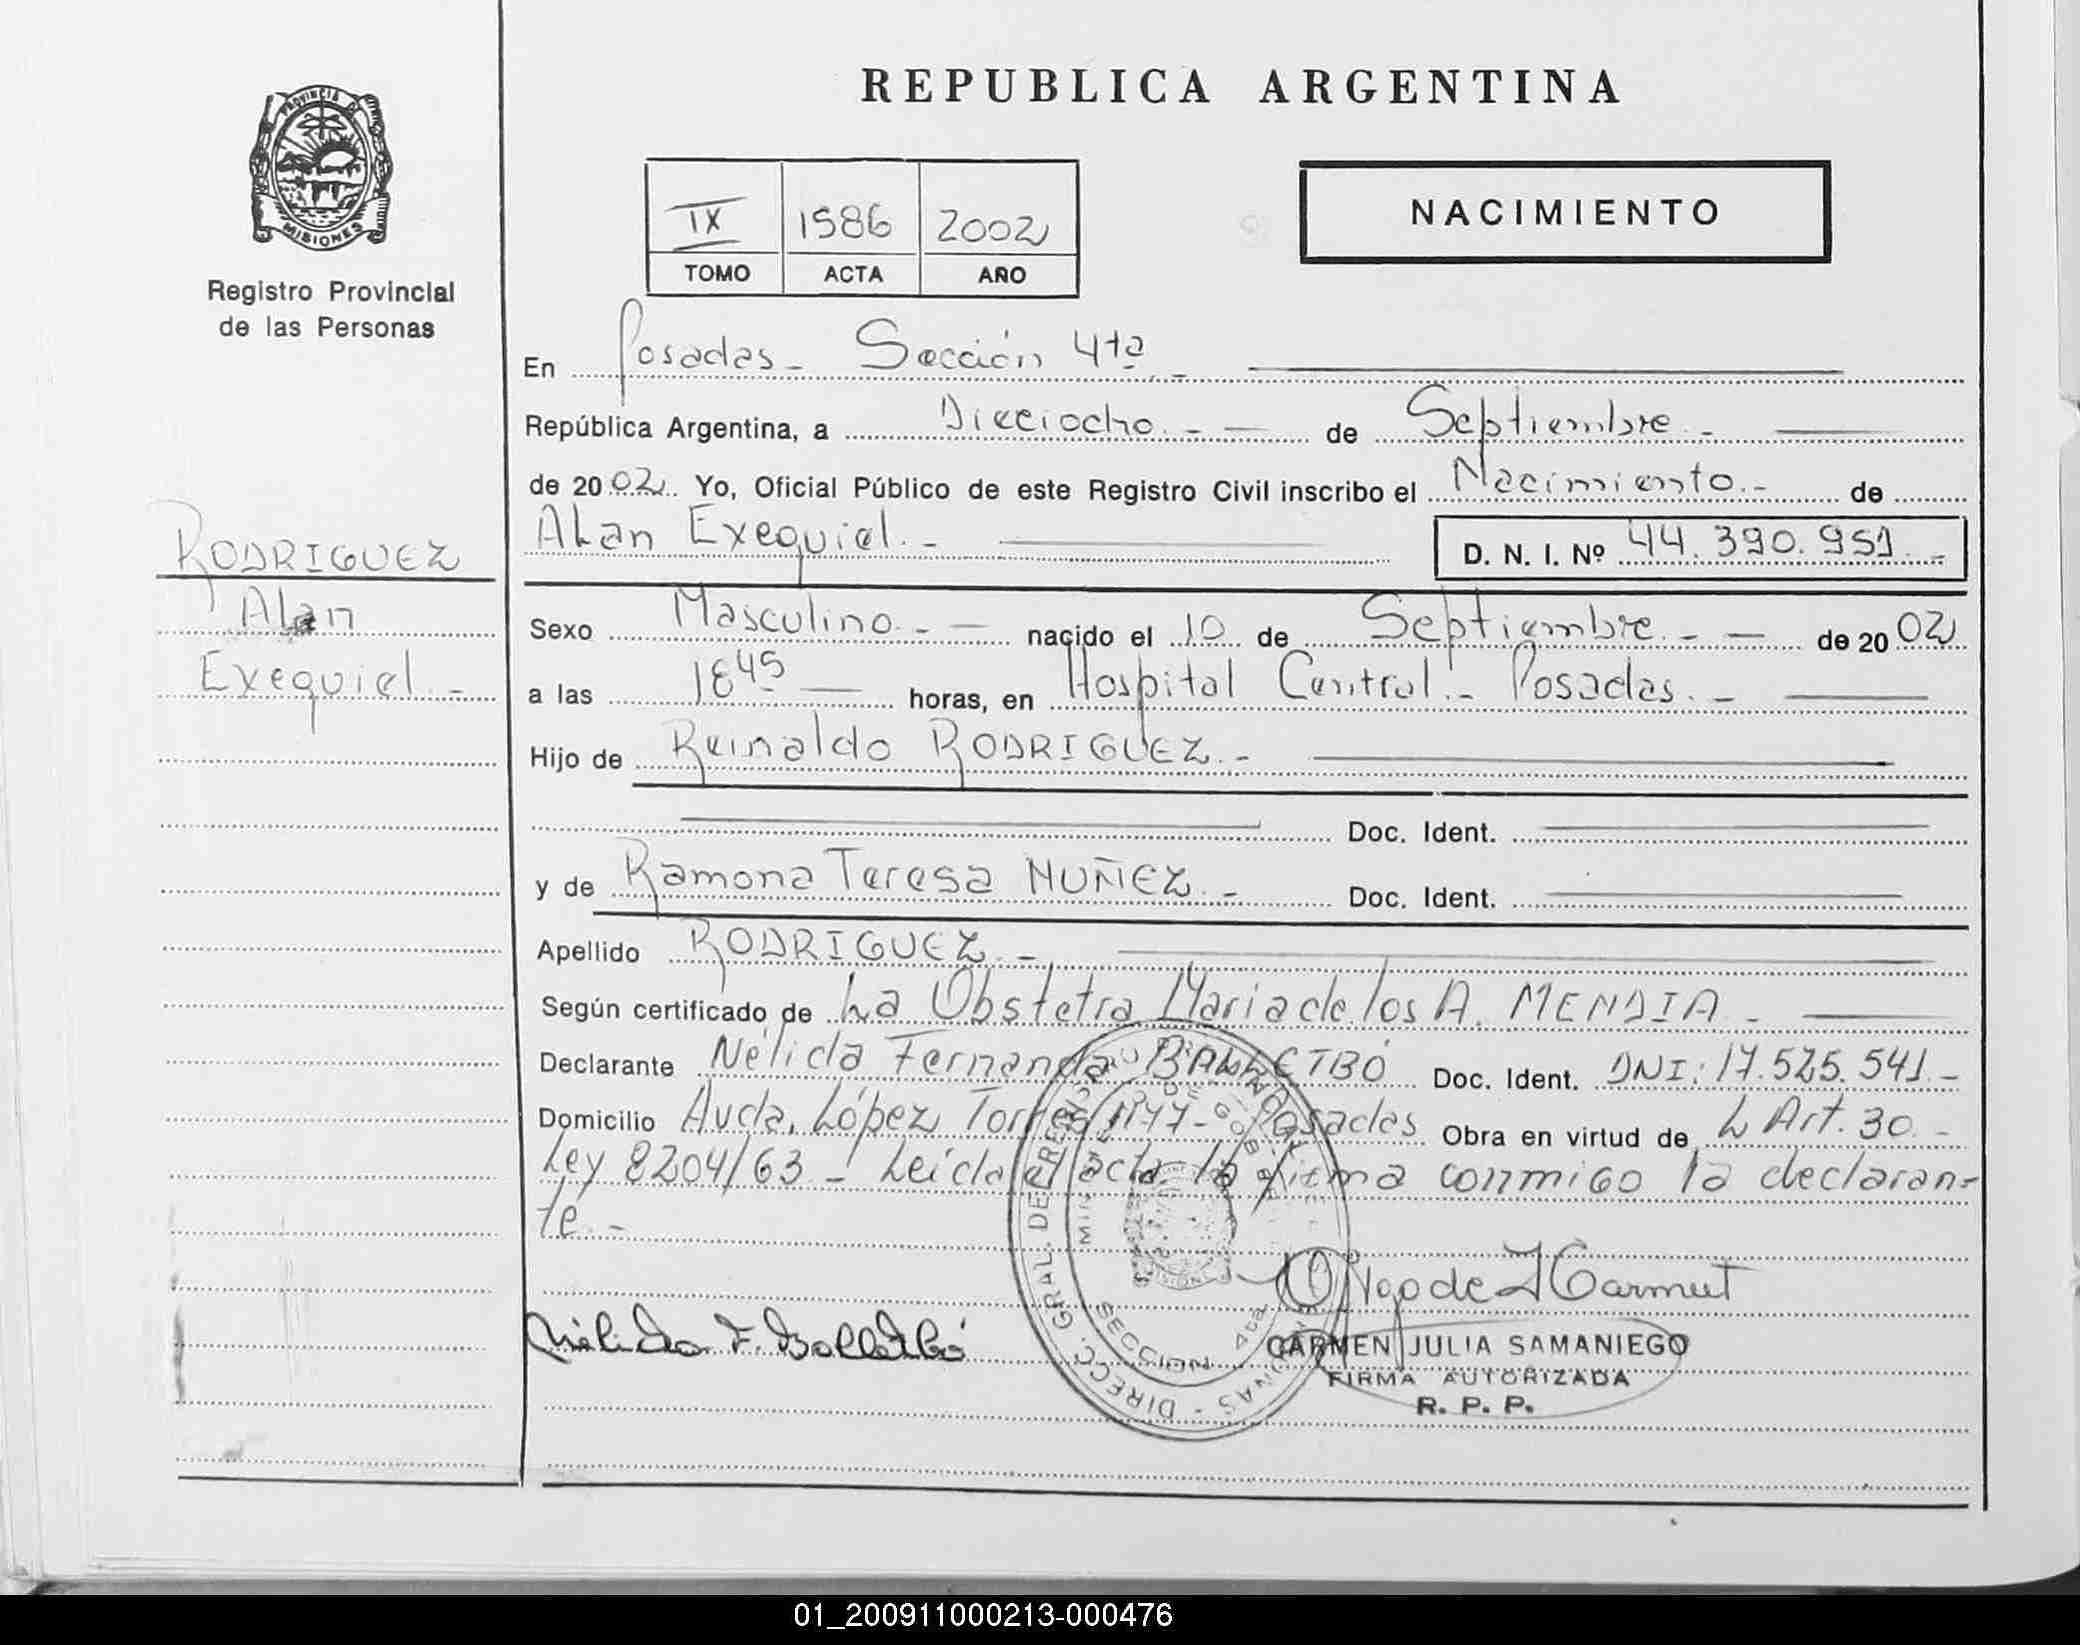 REPUBLICA ARGENTINA
PROVINCIA DE
MISIONES
Registro Provincial
de las Personas
IX 1586 2002
TOMO ACTA AÑO
NACIMIENTO
En Posadas - Sección 4ta. -
República Argentina, a Dieciocho. - de Septiembre. -
de 2002. Yo, Oficial Público de este Registro Civil inscribo el Nacimiento. - de
Alan Exequiel. - D. N. I. Nº 44.390.951. -
RODRIGUEZ
Alan
Exequiel. -
Sexo Masculino. - nacido el 10 de Septiembre. - de 2002
a las 18 45 horas, en Hospital Central. - Posadas. -
Hijo de Reinaldo RODRIGUEZ. -
Doc. Ident.
y de Ramona Teresa NUÑEZ. - Doc. Ident.
Apellido RODRIGUEZ. -
Según certificado de La Obstetra Maria de los A. MENDIA. -
Declarante Nélida Fernanda BALLETBÓ Doc. Ident. DNI: 17.525.541. -
Domicilio Avda. López Torres 1177 - Posadas Obra en virtud de L Art. 30. -
Ley 8204/63. - Leída el acta la firma conmigo la declaran-
te. -
Nélida F. Balletbó
SECCION 4ta
CARMEN JULIA SAMANIEGO
FIRMA AUTORIZADA
R. P. P.
01_200911000213-000476